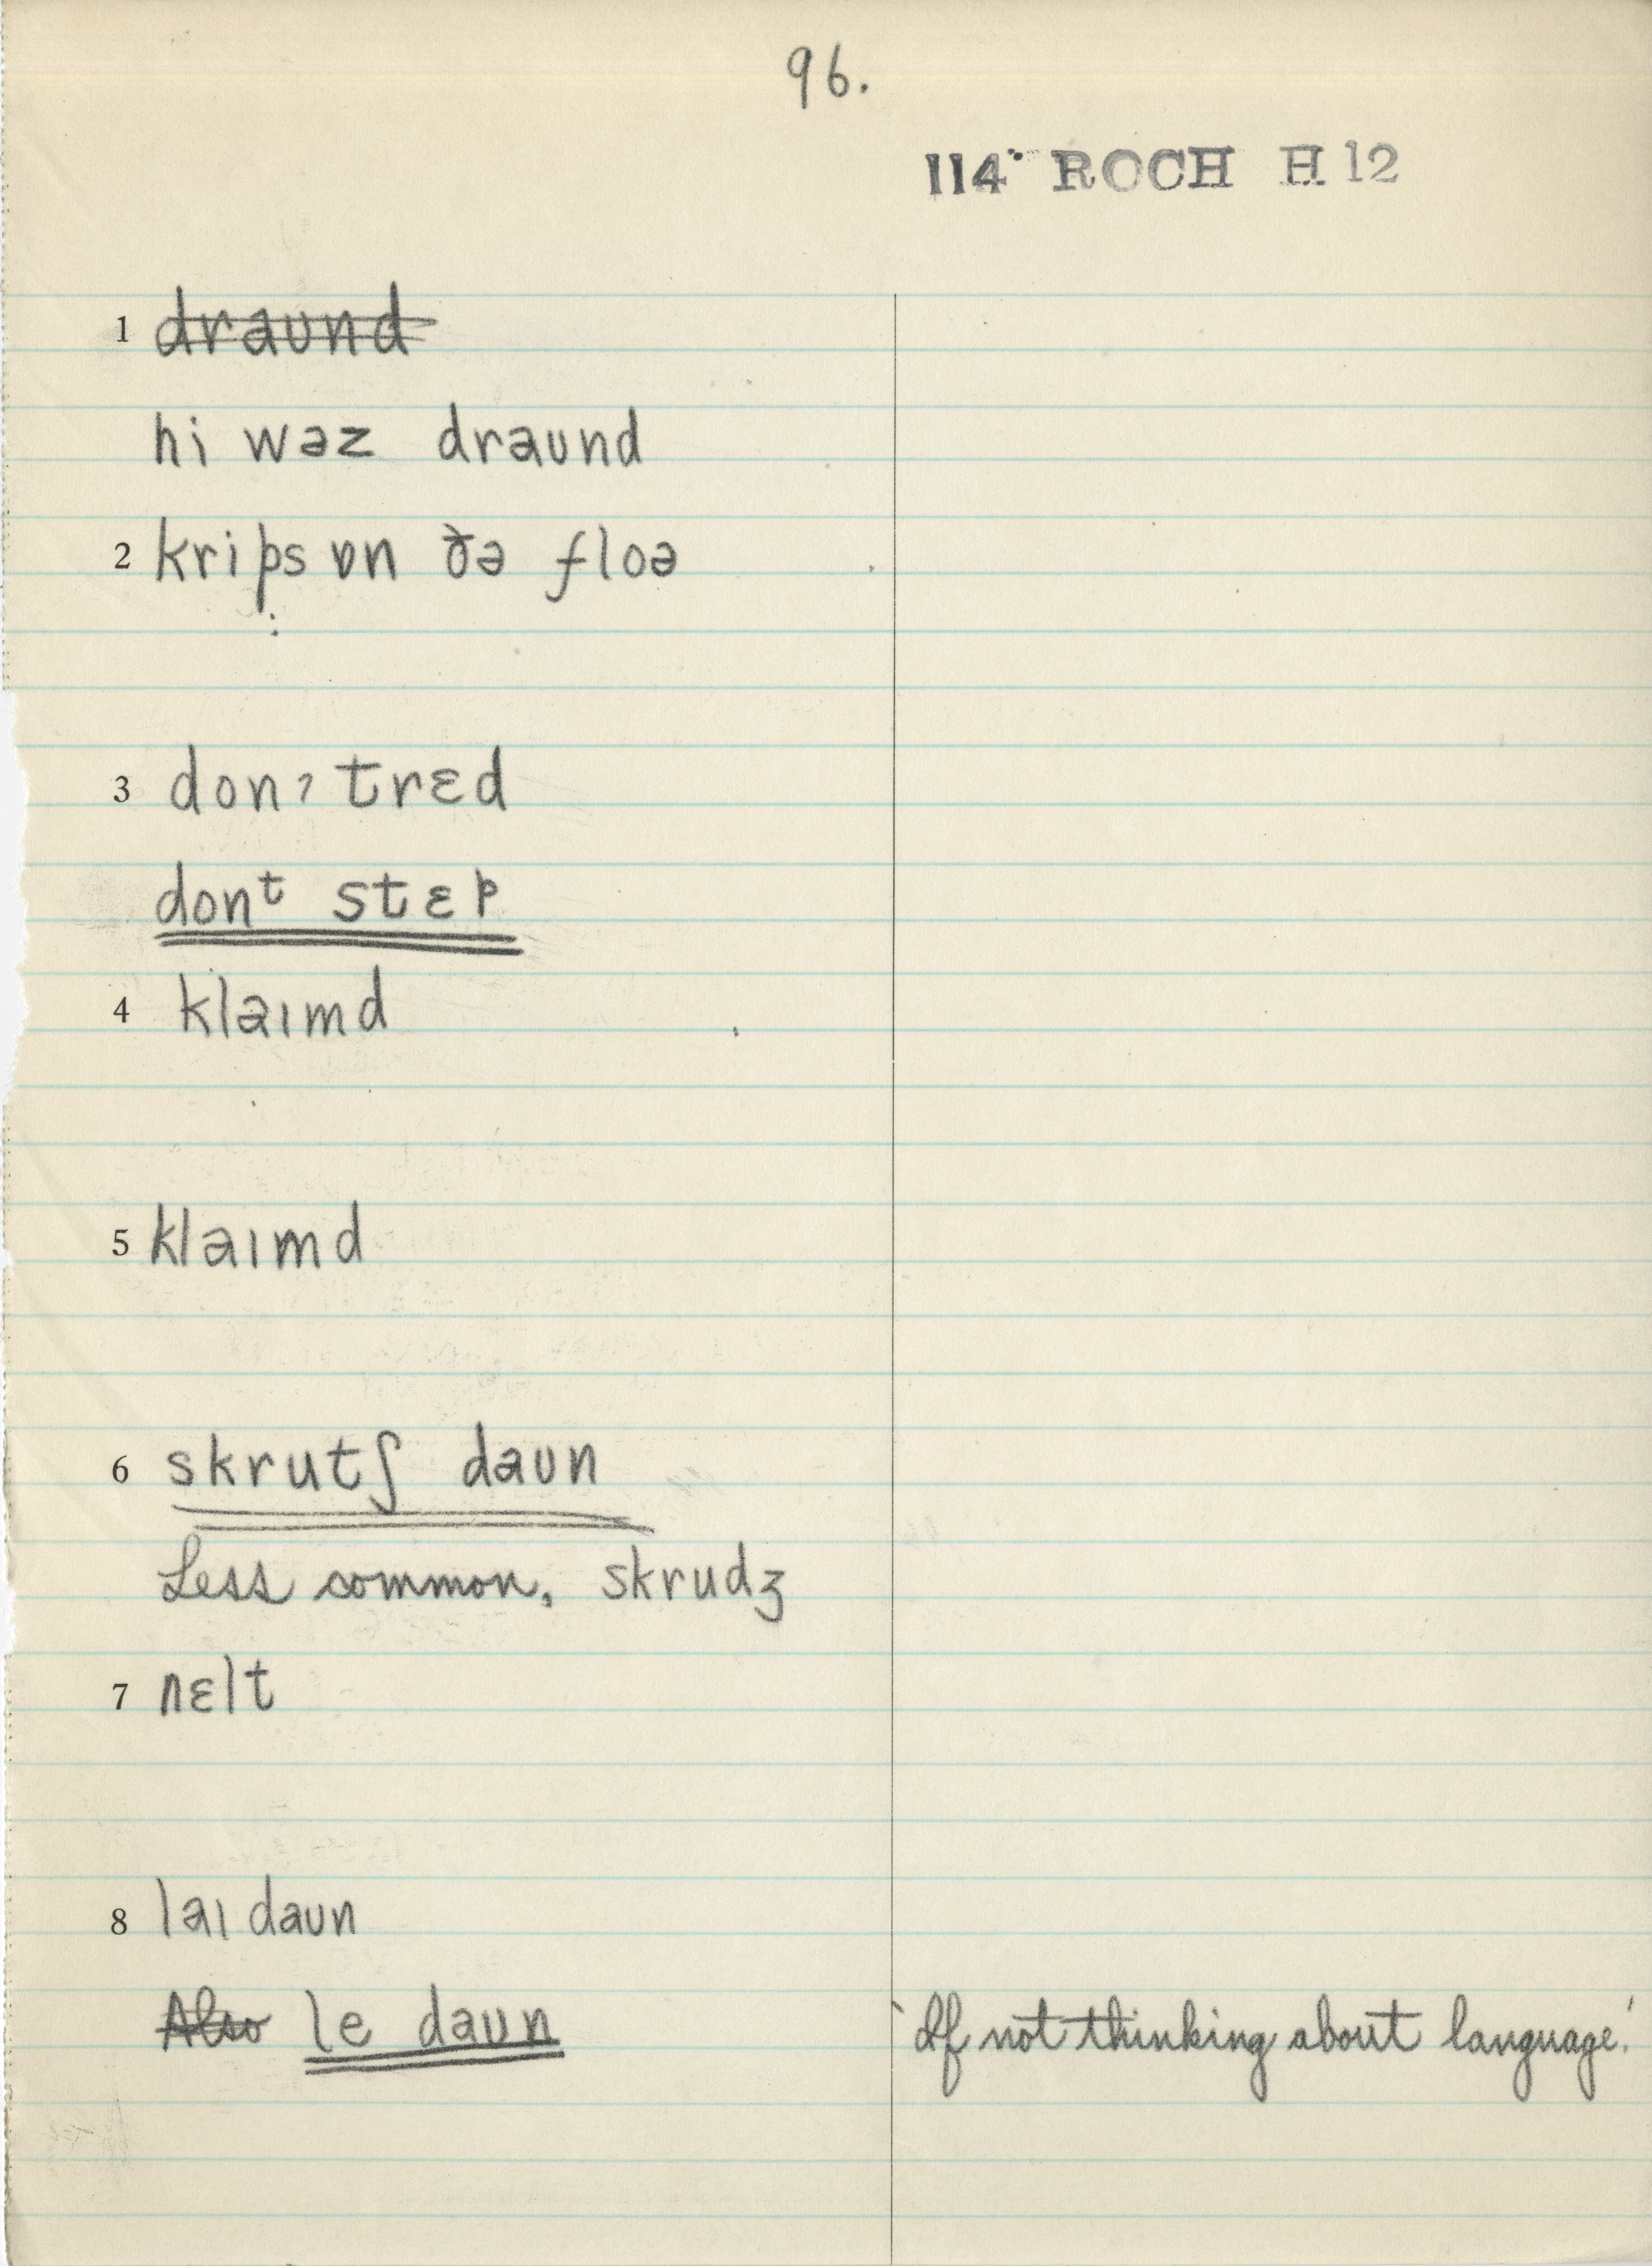 96.
114 ROCH H 12
1 draund
hi wəz draund
2 krips ɒn ðə floə
3 donʔ trɛd
donᵗ stɛp
4 klaɪmd
5 klaɪmd
6 skrutʃ daʊn
Less common, skrudʒ
7 nɛlt
8 laɪ daʊn
Also le daʊn 'If not thinking about language.'